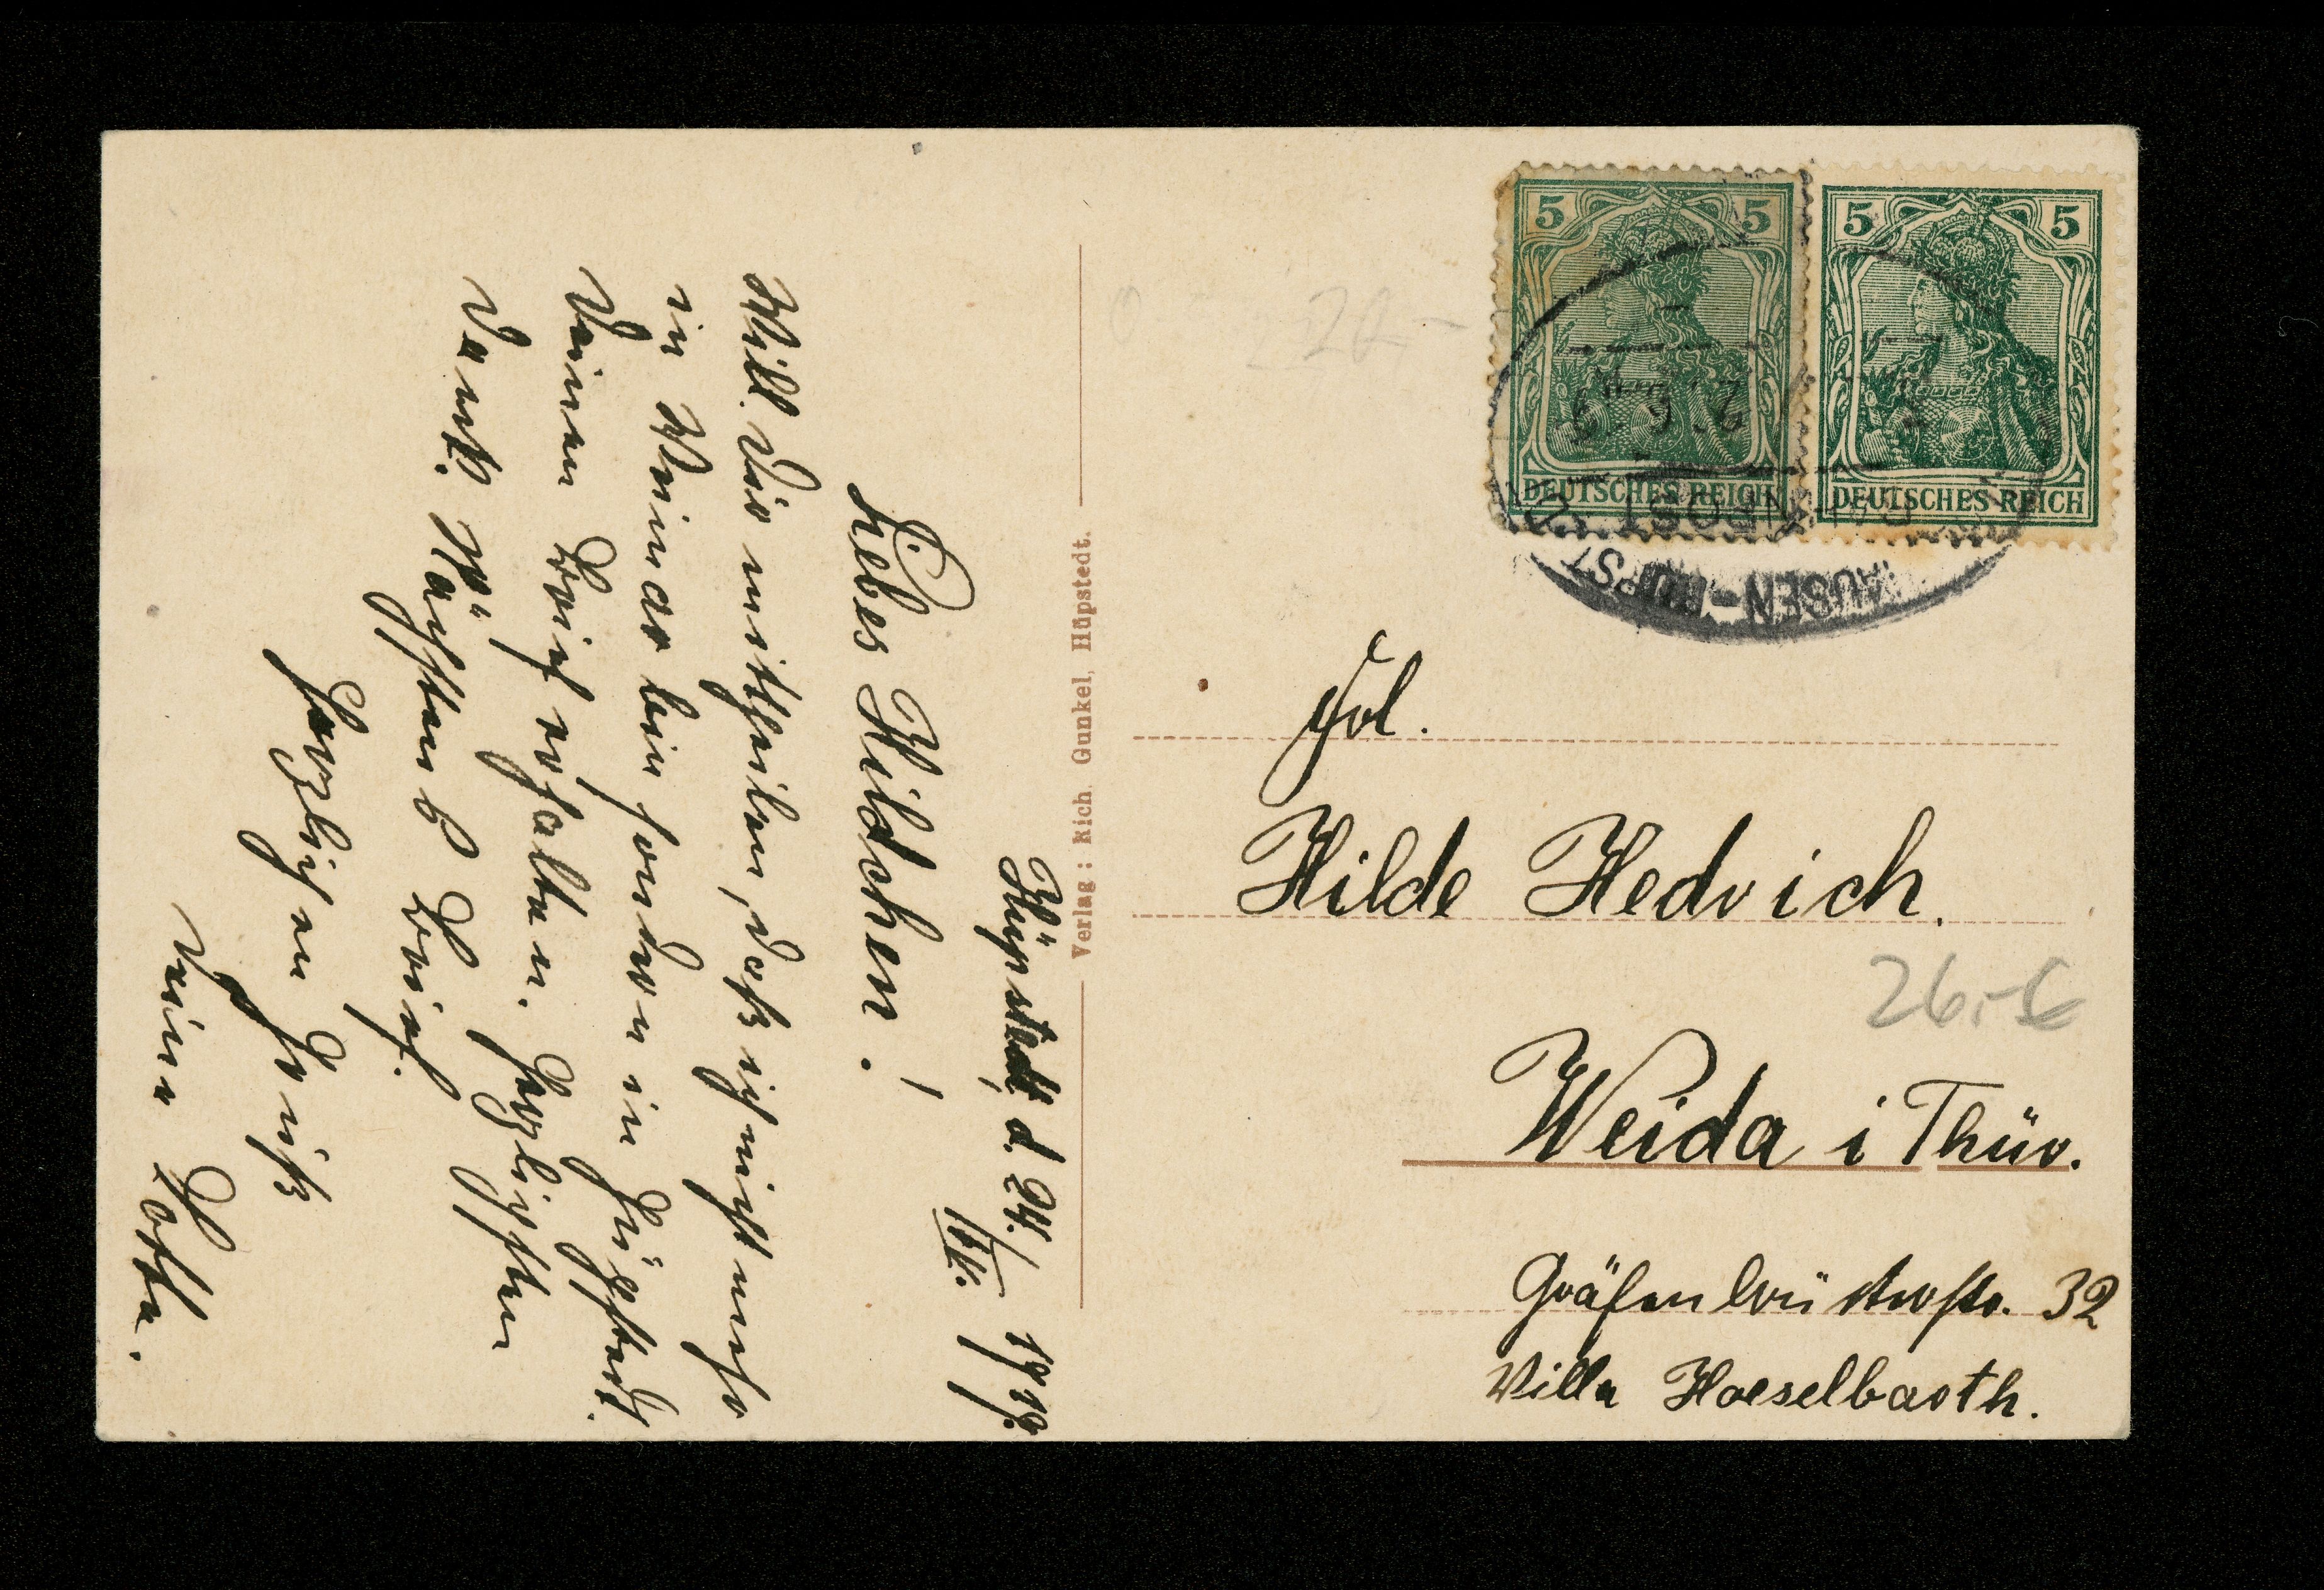 Hüpstedt, d. 24./VI. 1919.
Liebes Hildchen!
Will Dir mittheilen, daß ich nicht mehr
in Weimar bin sondern in Hüpstedt.
Deinen Brief erhalten. Herzlichsten
Dank. Nächstens Brief.
Herzlichen Gruß
Deine Lotte.
Verlag: Rich. Gunkel, Hüpstedt.
5 5
DEUTSCHES REICH
5 5
DEUTSCHES REICH
BAHNPOST
20,-
Frl.
Hilde Hedrich.
26,-€
Weida i Thür.
Gräfenbrückerstr. 32
Villa Haeselbarth.